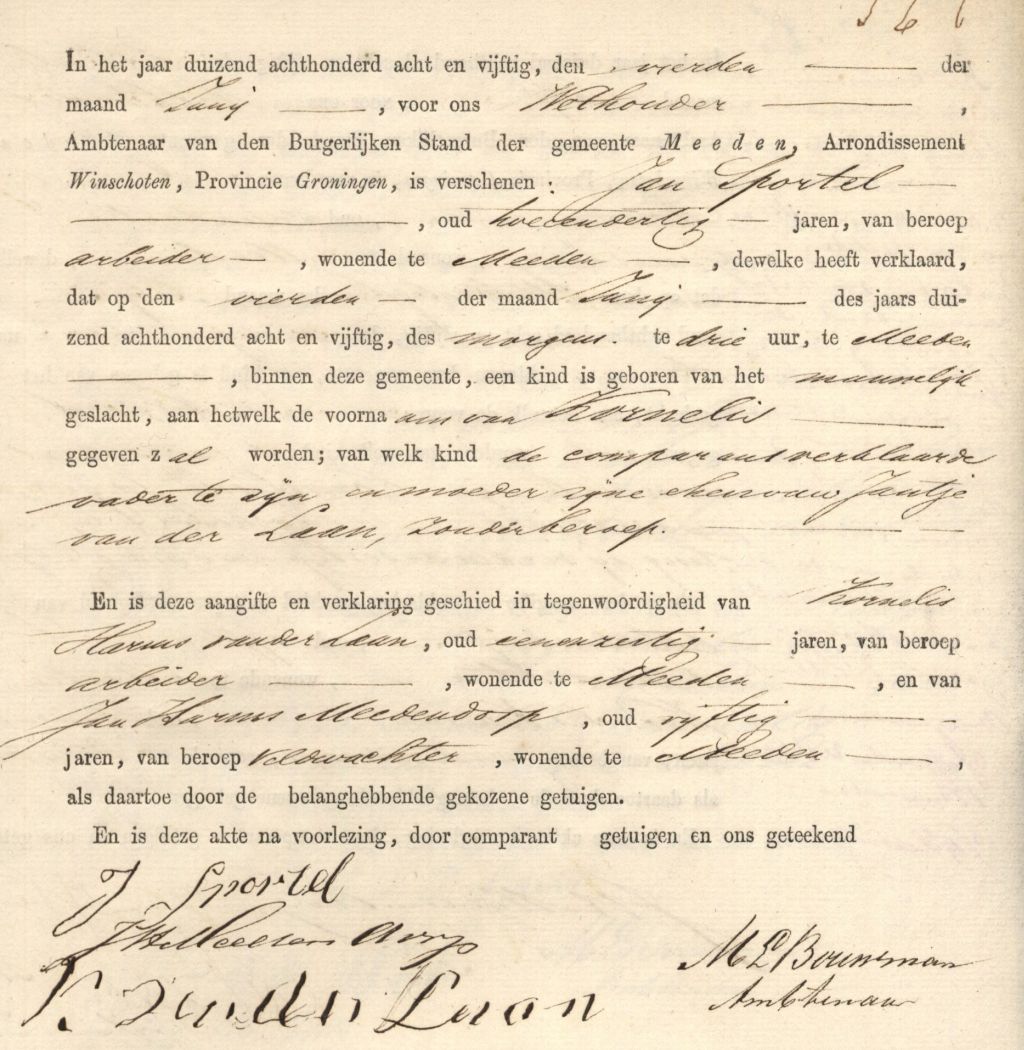 In het jaar duizend achthonderd acht en vijftig, den vierden der
maand Junij, voor ons Wethouder,
Ambtenaar van den Burgerlijken Stand der gemeente Meeden, Arrondissement
Winschoten, Provincie Groningen, is verschenen: Jan Sportel
, oud tweeendertig jaren, van beroep
arbeider, wonende te Meeden, dewelke heeft verklaard,
dat op den vierden der maand Junij des jaars dui-
zend achthonderd acht en vijftig, des morgens te drie uur, te Meeden
, binnen deze gemeente, een kind is geboren van het mannelijk
geslacht, aan hetwelk de voornaam van Kornelis
gegeven zal worden; van welk kind de comparant verklaarde
vader te zijn en moeder zijne ehevrouw Jantje
van der Laan, zonder beroep.
En is deze aangifte en verklaring geschied in tegenwoordigheid van Kornelis
Harms van der Laan, oud eenenzestig jaren, van beroep
arbeider, wonende te Meeden, en van
Jan Harms Meedendorp, oud vijftig
jaren, van beroep veldwachter, wonende te Meeden,
als daartoe door de belanghebbende gekozene getuigen.
En is deze akte na voorlezing, door comparant getuigen en ons geteekend
J Sportel
JH Meedendorp
K. van der Laan
M L Bouwman
Ambtenaar